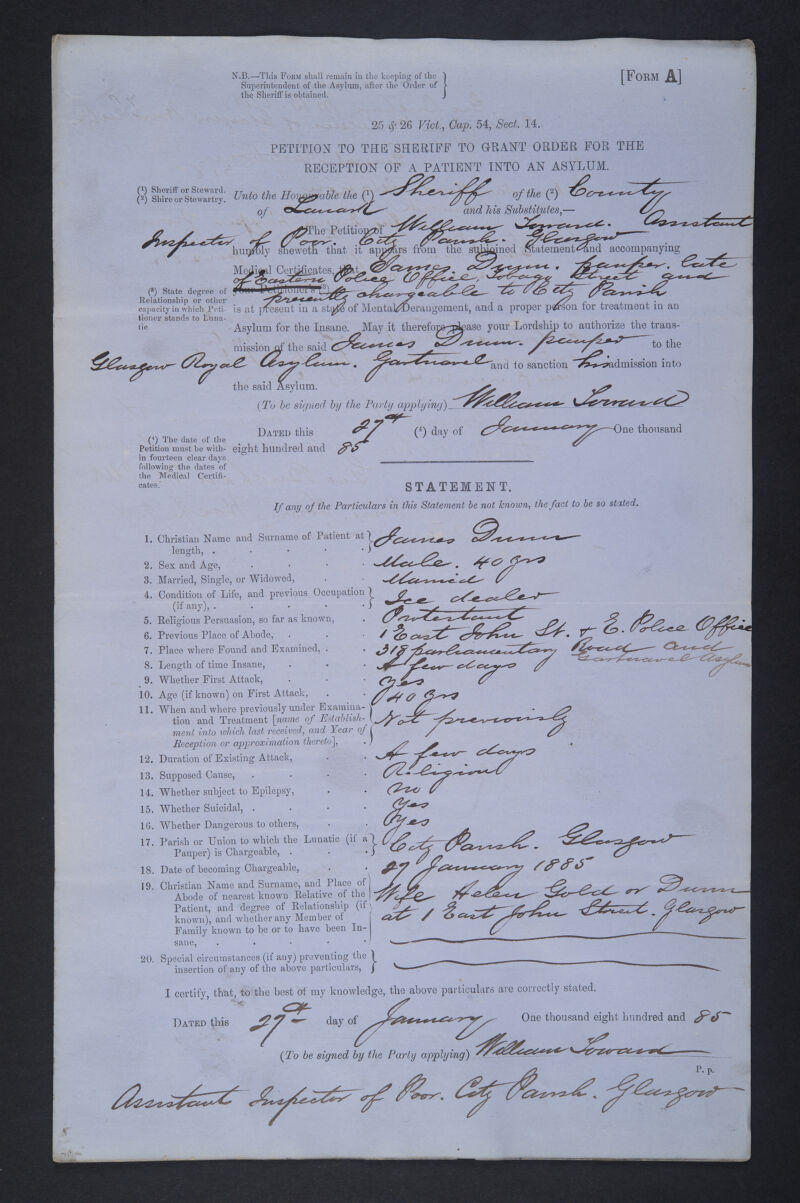 N.B.—This Form shall remain in the keeping of the
Superintendent of the Asylum, after the Order of
the Sheriff is obtained.
[Form A]
25 & 26 Vict., Cap. 54, Sect. 14.
PETITION TO THE SHERIFF TO GRANT ORDER FOR THE
RECEPTION OF A PATIENT INTO AN ASYLUM.
(1) Sheriff or Steward.
(2) Shire or Stewartry.
Unto the Honourable the (1) Sheriff of the (2) County
of Lanark and his Substitutes,—
The Petition of William Toward. Assistant
Inspector of Poor. City Parish. Glasgow
humbly sheweth that it appears from the subjoined Statement and accompanying
Medical Certificates, that James Dunn. pauper. late
of Eastern Police Office, Tobago Street and
(3) State degree of
Relationship or other
capacity in which Peti-
tioner stands to Luna-
tic
presently chargeable to City Parish
is at present in a state of Mental Derangement, and a proper person for treatment in an
Asylum for the Insane. May it therefore please your Lordship to authorize the trans-
mission of the said James Dunn. pauper to the
Glasgow Royal Asylum. Gartnavel and to sanction his admission into
the said Asylum.
(To be signed by the Party applying) William Toward
Dated this 27th (4) day of January One thousand
eight hundred and 85
(4) The date of the
Petition must be with-
in fourteen clear days
following the dates of
the Medical Certifi-
cates.
STATEMENT.
If any of the Particulars in this Statement be not known, the fact to be so stated.
1. Christian Name and Surname of Patient at length, . . . . . James Dunn
2. Sex and Age, . . . . Male. 40 yrs
3. Married, Single, or Widowed, . . Married
4. Condition of Life, and previous Occupation (if any), . . . . . Ice dealer
5. Religious Persuasion, so far as known, . Protestant
6. Previous Place of Abode, . . . 1 East John St. & E. Police Office
7. Place where Found and Examined, . . 318 parliamentary Road and
Gartnavel Asylum
8. Length of time Insane, . . . A few days
9. Whether First Attack, . . . yes
10. Age (if known) on First Attack, . . 40 yrs
11. When and where previously under Examina-
tion and Treatment [name of Establish-
ment into which last received, and Year of
Reception or approximation thereto], . Not previously
12. Duration of Existing Attack, . . A few days
13. Supposed Cause, . . . . Religion
14. Whether subject to Epilepsy, . . no
15. Whether Suicidal, . . . . Yes
16. Whether Dangerous to others, . . Yes
17. Parish or Union to which the Lunatic (if a
Pauper) is Chargeable, . . . City Parish. Glasgow
18. Date of becoming Chargeable, . . 27 January 1885
19. Christian Name and Surname, and Place of
Abode of nearest known Relative of the
Patient, and degree of Relationship (if
known), and whether any Member of
Family known to be or to have been In-
sane, . . . . .
Wife Helen Gold or Dunn
at 1 East John Street. Glasgow
20. Special circumstances (if any) preventing the
insertion of any of the above particulars,
I certify, that, to the best of my knowledge, the above particulars are correctly stated.
Dated this 27th day of January One thousand eight hundred and 85
(To be signed by the Party applying) William Toward
P. p.
Assistant Inspector of Poor. City Parish. Glasgow